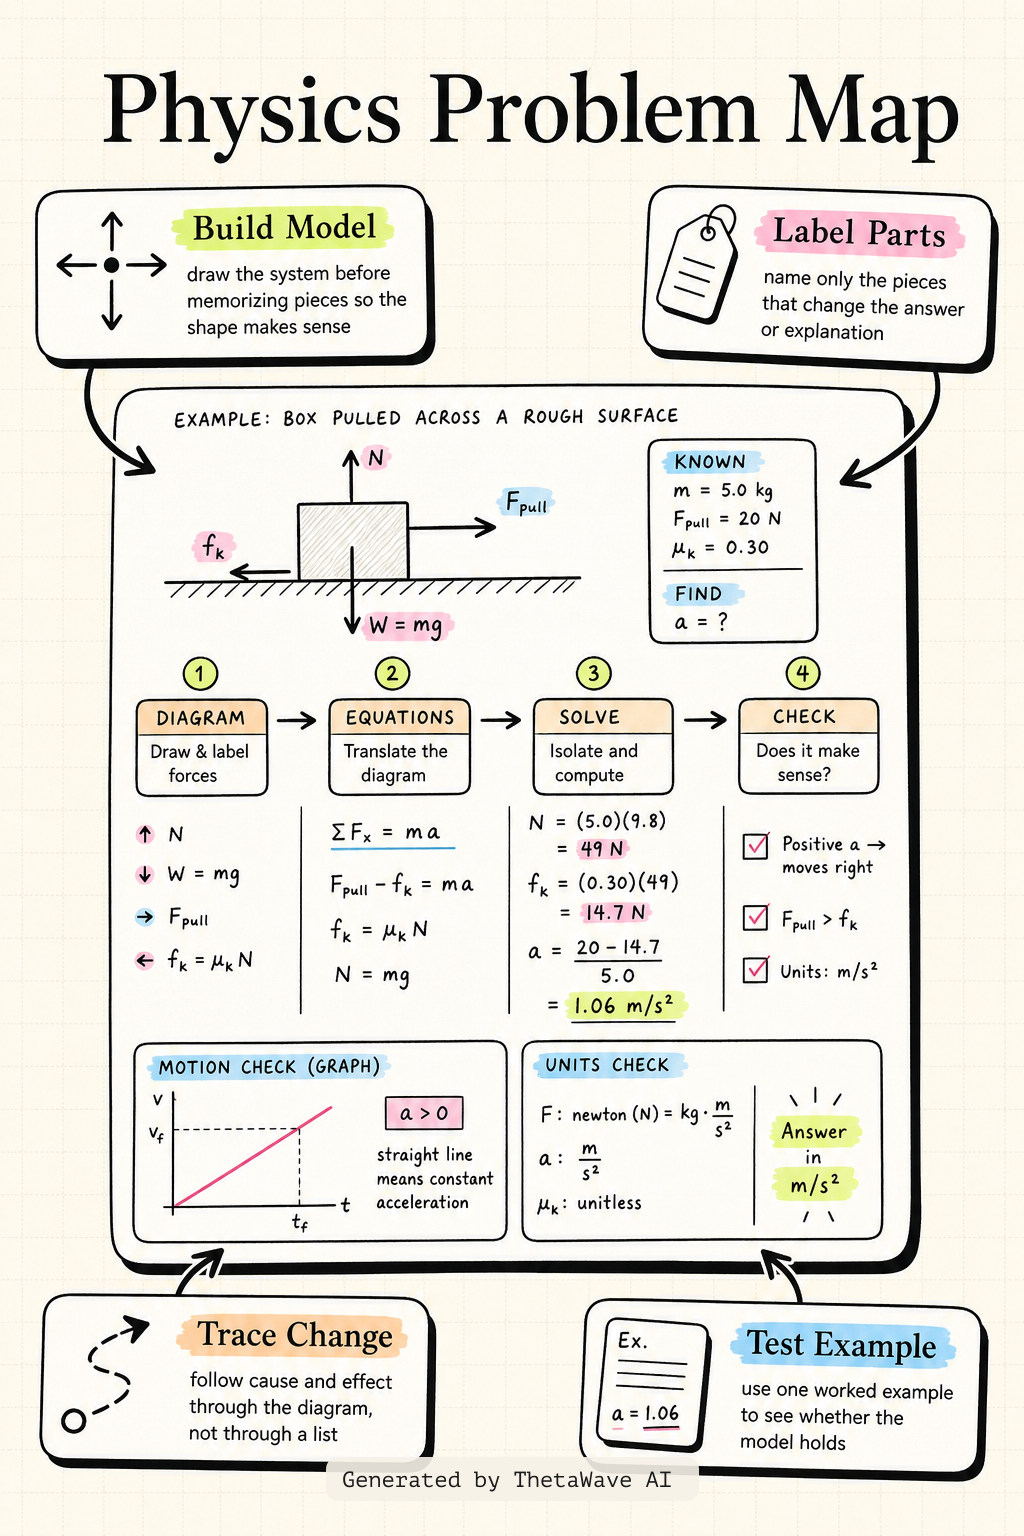 Physics Problem Map
Build Model
draw the system before
memorizing pieces so the
shape makes sense
Label Parts
name only the pieces
that change the answer
or explanation
EXAMPLE: BOX PULLED ACROSS A ROUGH SURFACE
N
F_pull
f_k
W = mg
KNOWN
m = 5.0 kg
F_pull = 20 N
μ_k = 0.30
FIND
a = ?
1
DIAGRAM
Draw & label
forces
↑ N
↓ W = mg
→ F_pull
← f_k = μ_k N
2
EQUATIONS
Translate the
diagram
ΣF_x = ma
F_pull – f_k = ma
f_k = μ_k N
N = mg
3
SOLVE
Isolate and
compute
N = (5.0)(9.8)
= 49 N
f_k = (0.30)(49)
= 14.7 N
a = 20 – 14.7
5.0
= 1.06 m/s²
4
CHECK
Does it make
sense?
Positive a →
moves right
F_pull > f_k
Units: m/s²
MOTION CHECK (GRAPH)
v
v_f
t_f
t
a > 0
straight line
means constant
acceleration
UNITS CHECK
F: newton (N) = kg · m/s²
a: m/s²
μ_k: unitless
Answer
in
m/s²
Trace Change
follow cause and effect
through the diagram,
not through a list
Ex.
a = 1.06
Test Example
use one worked example
to see whether the
model holds
Generated by ThetaWave AI